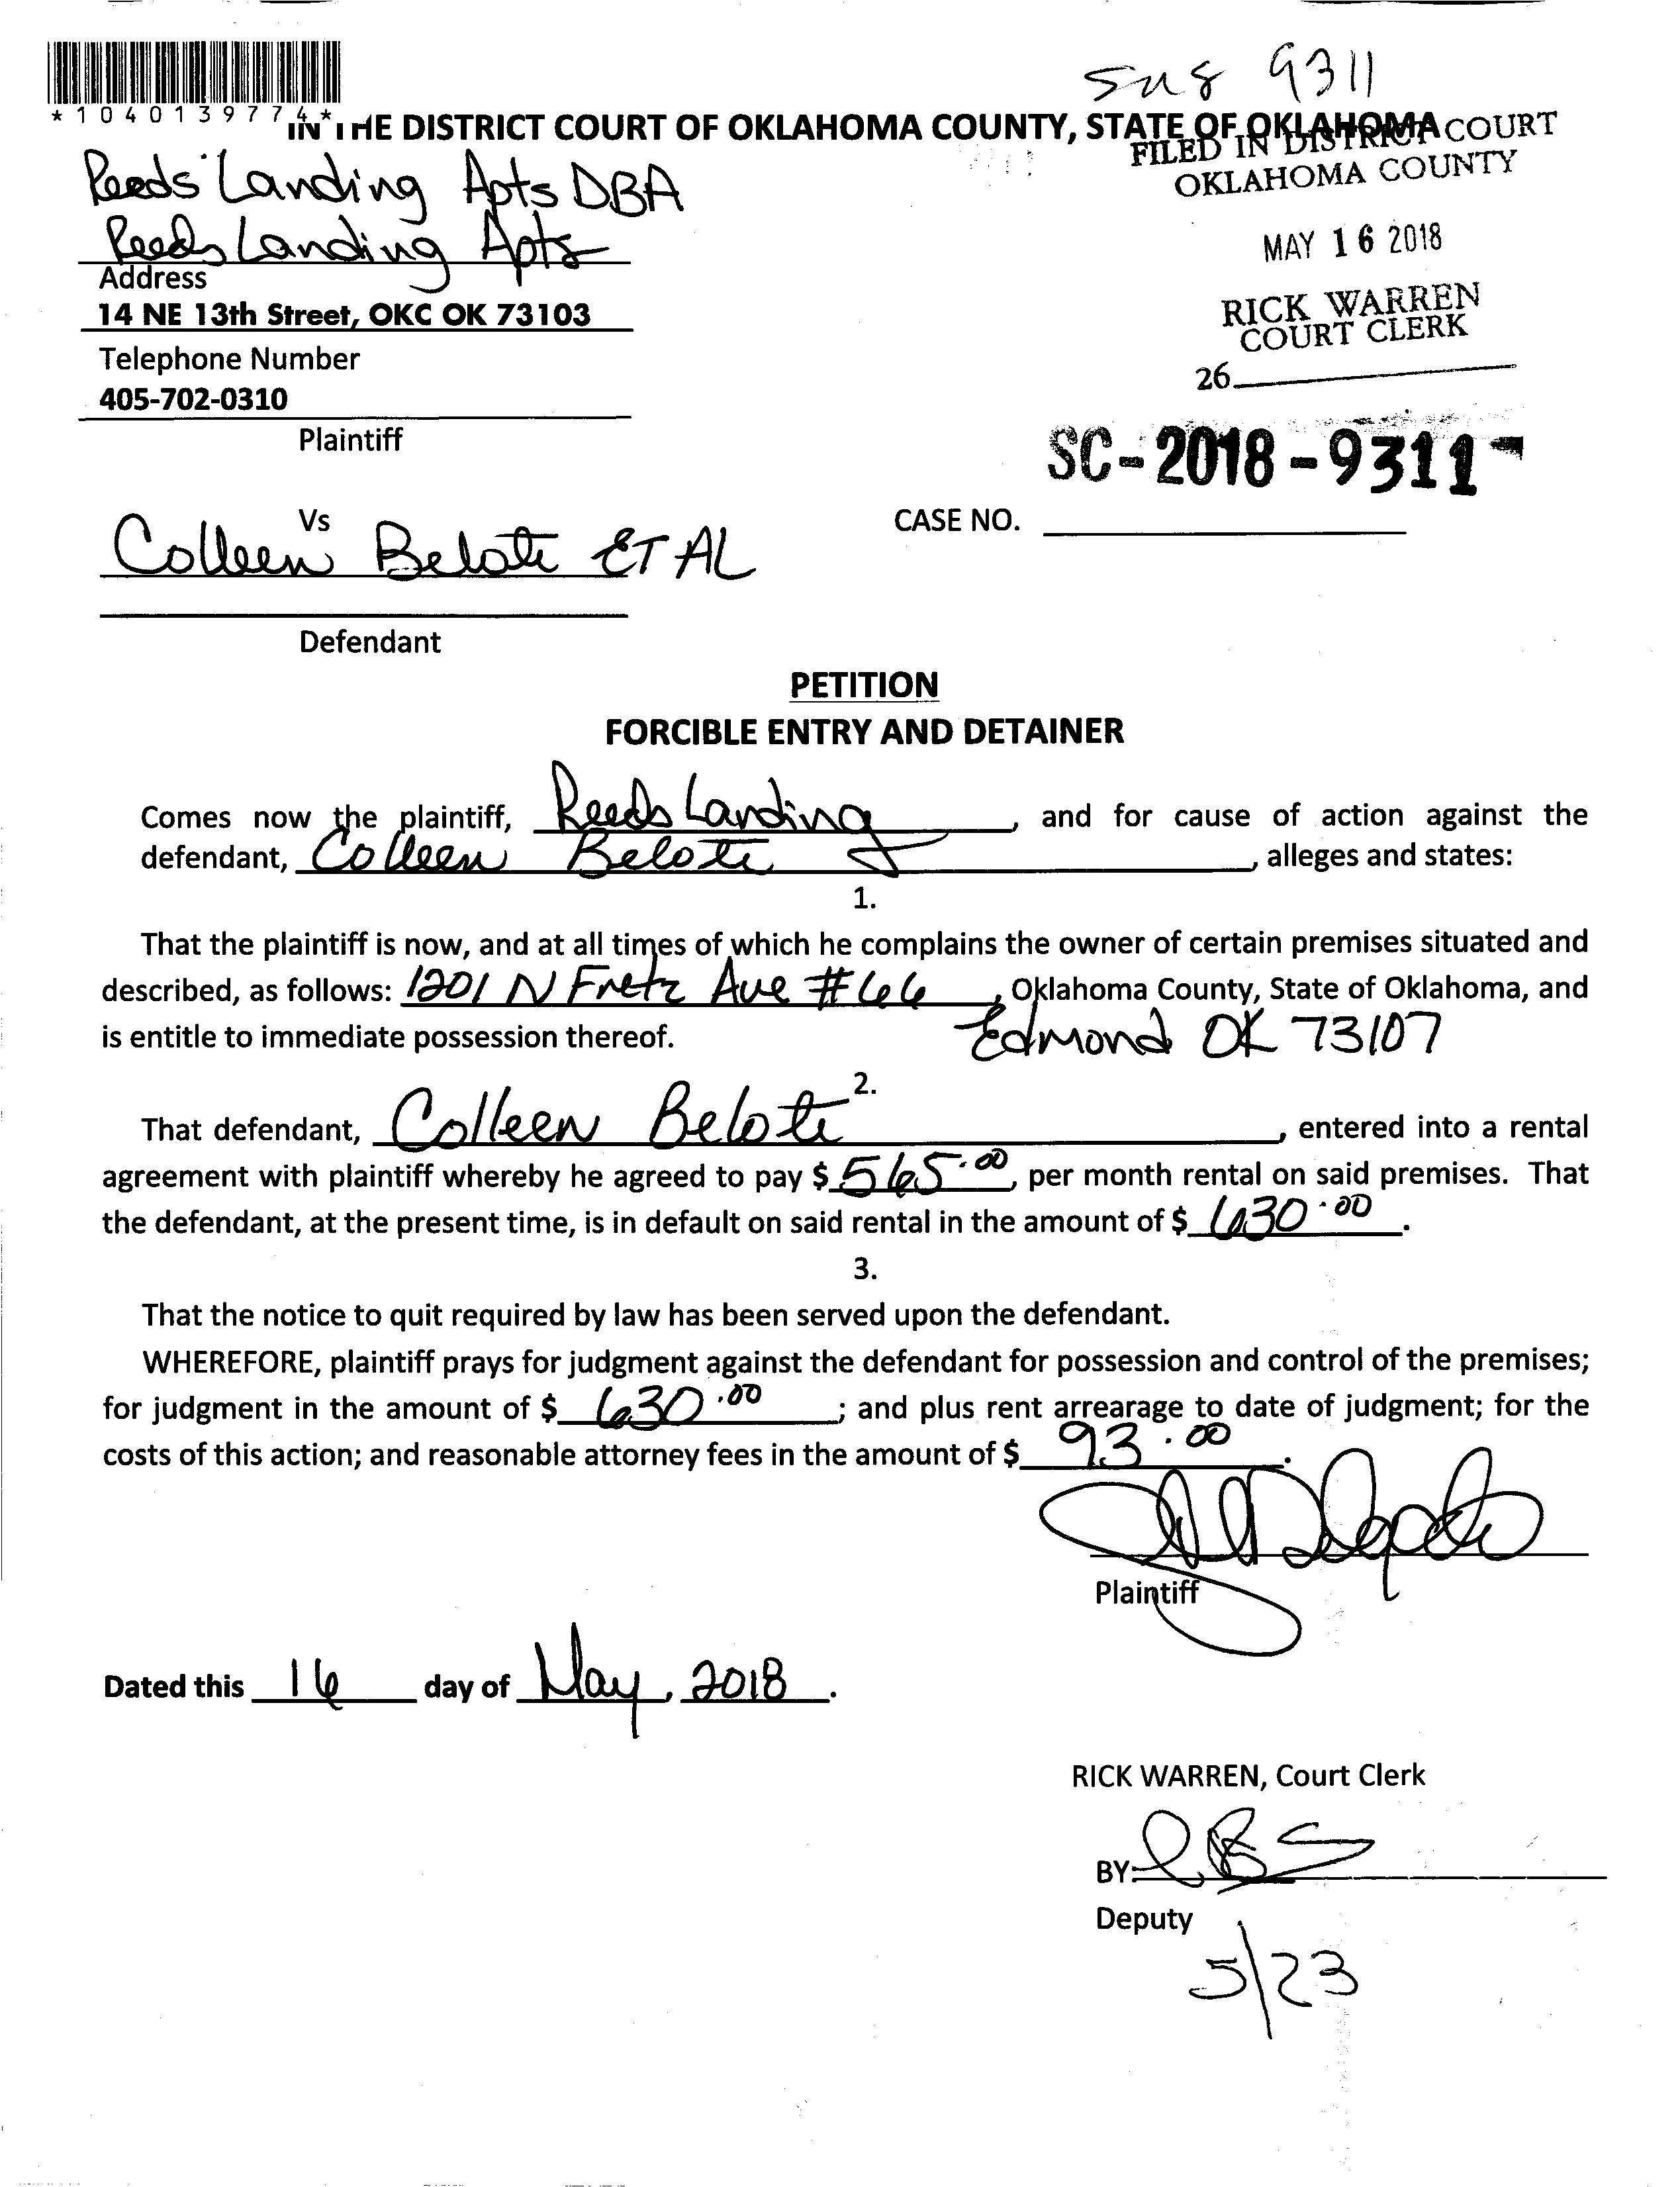 9311
*1040139774*
IN THE DISTRICT COURT OF OKLAHOMA COUNTY, STATE OF OKLAHOMA
FILED IN DISTRICT COURT
OKLAHOMA COUNTY
Reeds Landing Apts DBA
Reeds Landing Apts
MAY 16 2018
Address
14 NE 13th Street, OKC OK 73103
RICK WARREN
COURT CLERK
Telephone Number
26
405-702-0310
Plaintiff
SC-2018-9311-
Vs
CASE NO.
Colleen Belote ET AL
Defendant
PETITION
FORCIBLE ENTRY AND DETAINER
Comes now the plaintiff, Reeds Landing, and for cause of action against the
defendant, Colleen Belote, alleges and states:
1.
That the plaintiff is now, and at all times of which he complains the owner of certain premises situated and
described, as follows: 1201 N Fretz Ave #66, Oklahoma County, State of Oklahoma, and
is entitle to immediate possession thereof. Edmond OK 73107
2.
That defendant, Colleen Belote, entered into a rental
agreement with plaintiff whereby he agreed to pay $ 565.00, per month rental on said premises. That
the defendant, at the present time, is in default on said rental in the amount of $ 630.00.
3.
That the notice to quit required by law has been served upon the defendant.
WHEREFORE, plaintiff prays for judgment against the defendant for possession and control of the premises;
for judgment in the amount of $ 630.00; and plus rent arrearage to date of judgment; for the
costs of this action; and reasonable attorney fees in the amount of $ 93.00.
Plaintiff
Dated this 16 day of May, 2018.
RICK WARREN, Court Clerk
BY:
Deputy
5/23